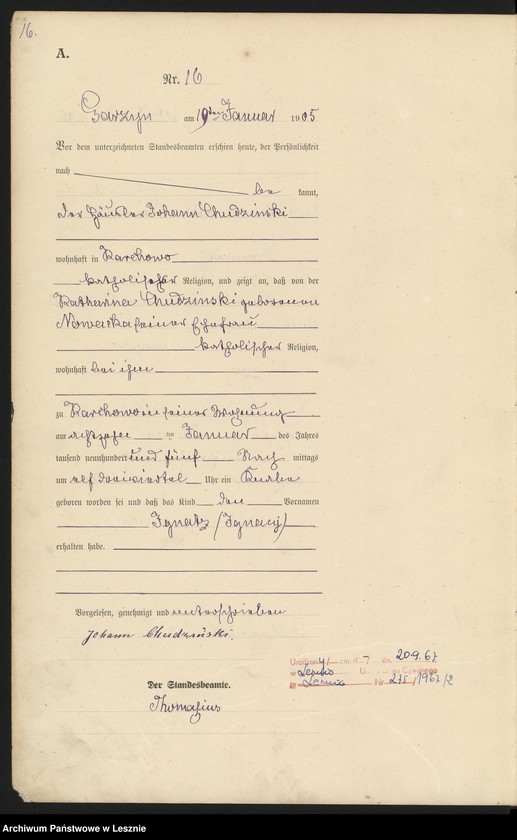 16.
A.
Nr. 16
Garzyn am 19ten Januar 1905
Vor dem unterzeichneten Standesbeamten erschien heute, der Persönlichkeit
nach
be kannt,
der Häusler Johann Chudzinski
wohnhaft in Karchowo
katholischer Religion, und zeigt an, daß von der
Katharina Chudzinski geborenen
Nowacka seiner Ehefrau
katholischer Religion,
wohnhaft bei ihm
zu Karchowo in seiner Wohnung
am achtzehn ten Januar des Jahres
tausend neunhundert und fünf Nach mittags
um elf dreiviertel Uhr ein Knabe
geboren worden sei und daß das Kind den Vornamen
Ignatz (Ignacy)
erhalten habe.
Vorgelesen, genehmigt und unterschrieben
Johann Chudziński.
Der Standesbeamte.
Thomasius
dn. 20.9.67
w
Nr 275/1967/2
Archiwum Państwowe w Lesznie